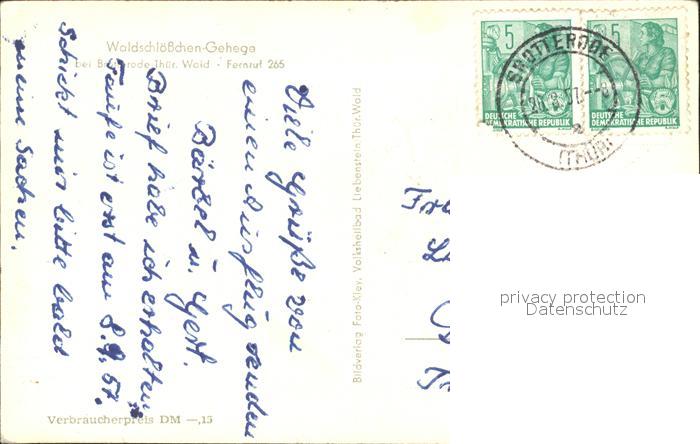 Waldschlößchen-Gehege
bei Brotterode Thür. Wald · Fernruf 265
Viele Grüße von
einen Ausflug senden
Bärbel u. Gert.
Brief habe ich erhalten
Taufe ist erst am 8.9.57.
Schickt mir bitte bald
meine Sachen.
Verbraucherpreis DM —,15
Bildverlag Foto-Kley, Volksheilbad Liebenstein Thür. Wald
5
DEUTSCHE
DEMOKRATISCHE REPUBLIK
5
DEUTSCHE
DEMOKRATISCHE REPUBLIK
BROTTERODE
(THÜR)
privacy protection
Datenschutz